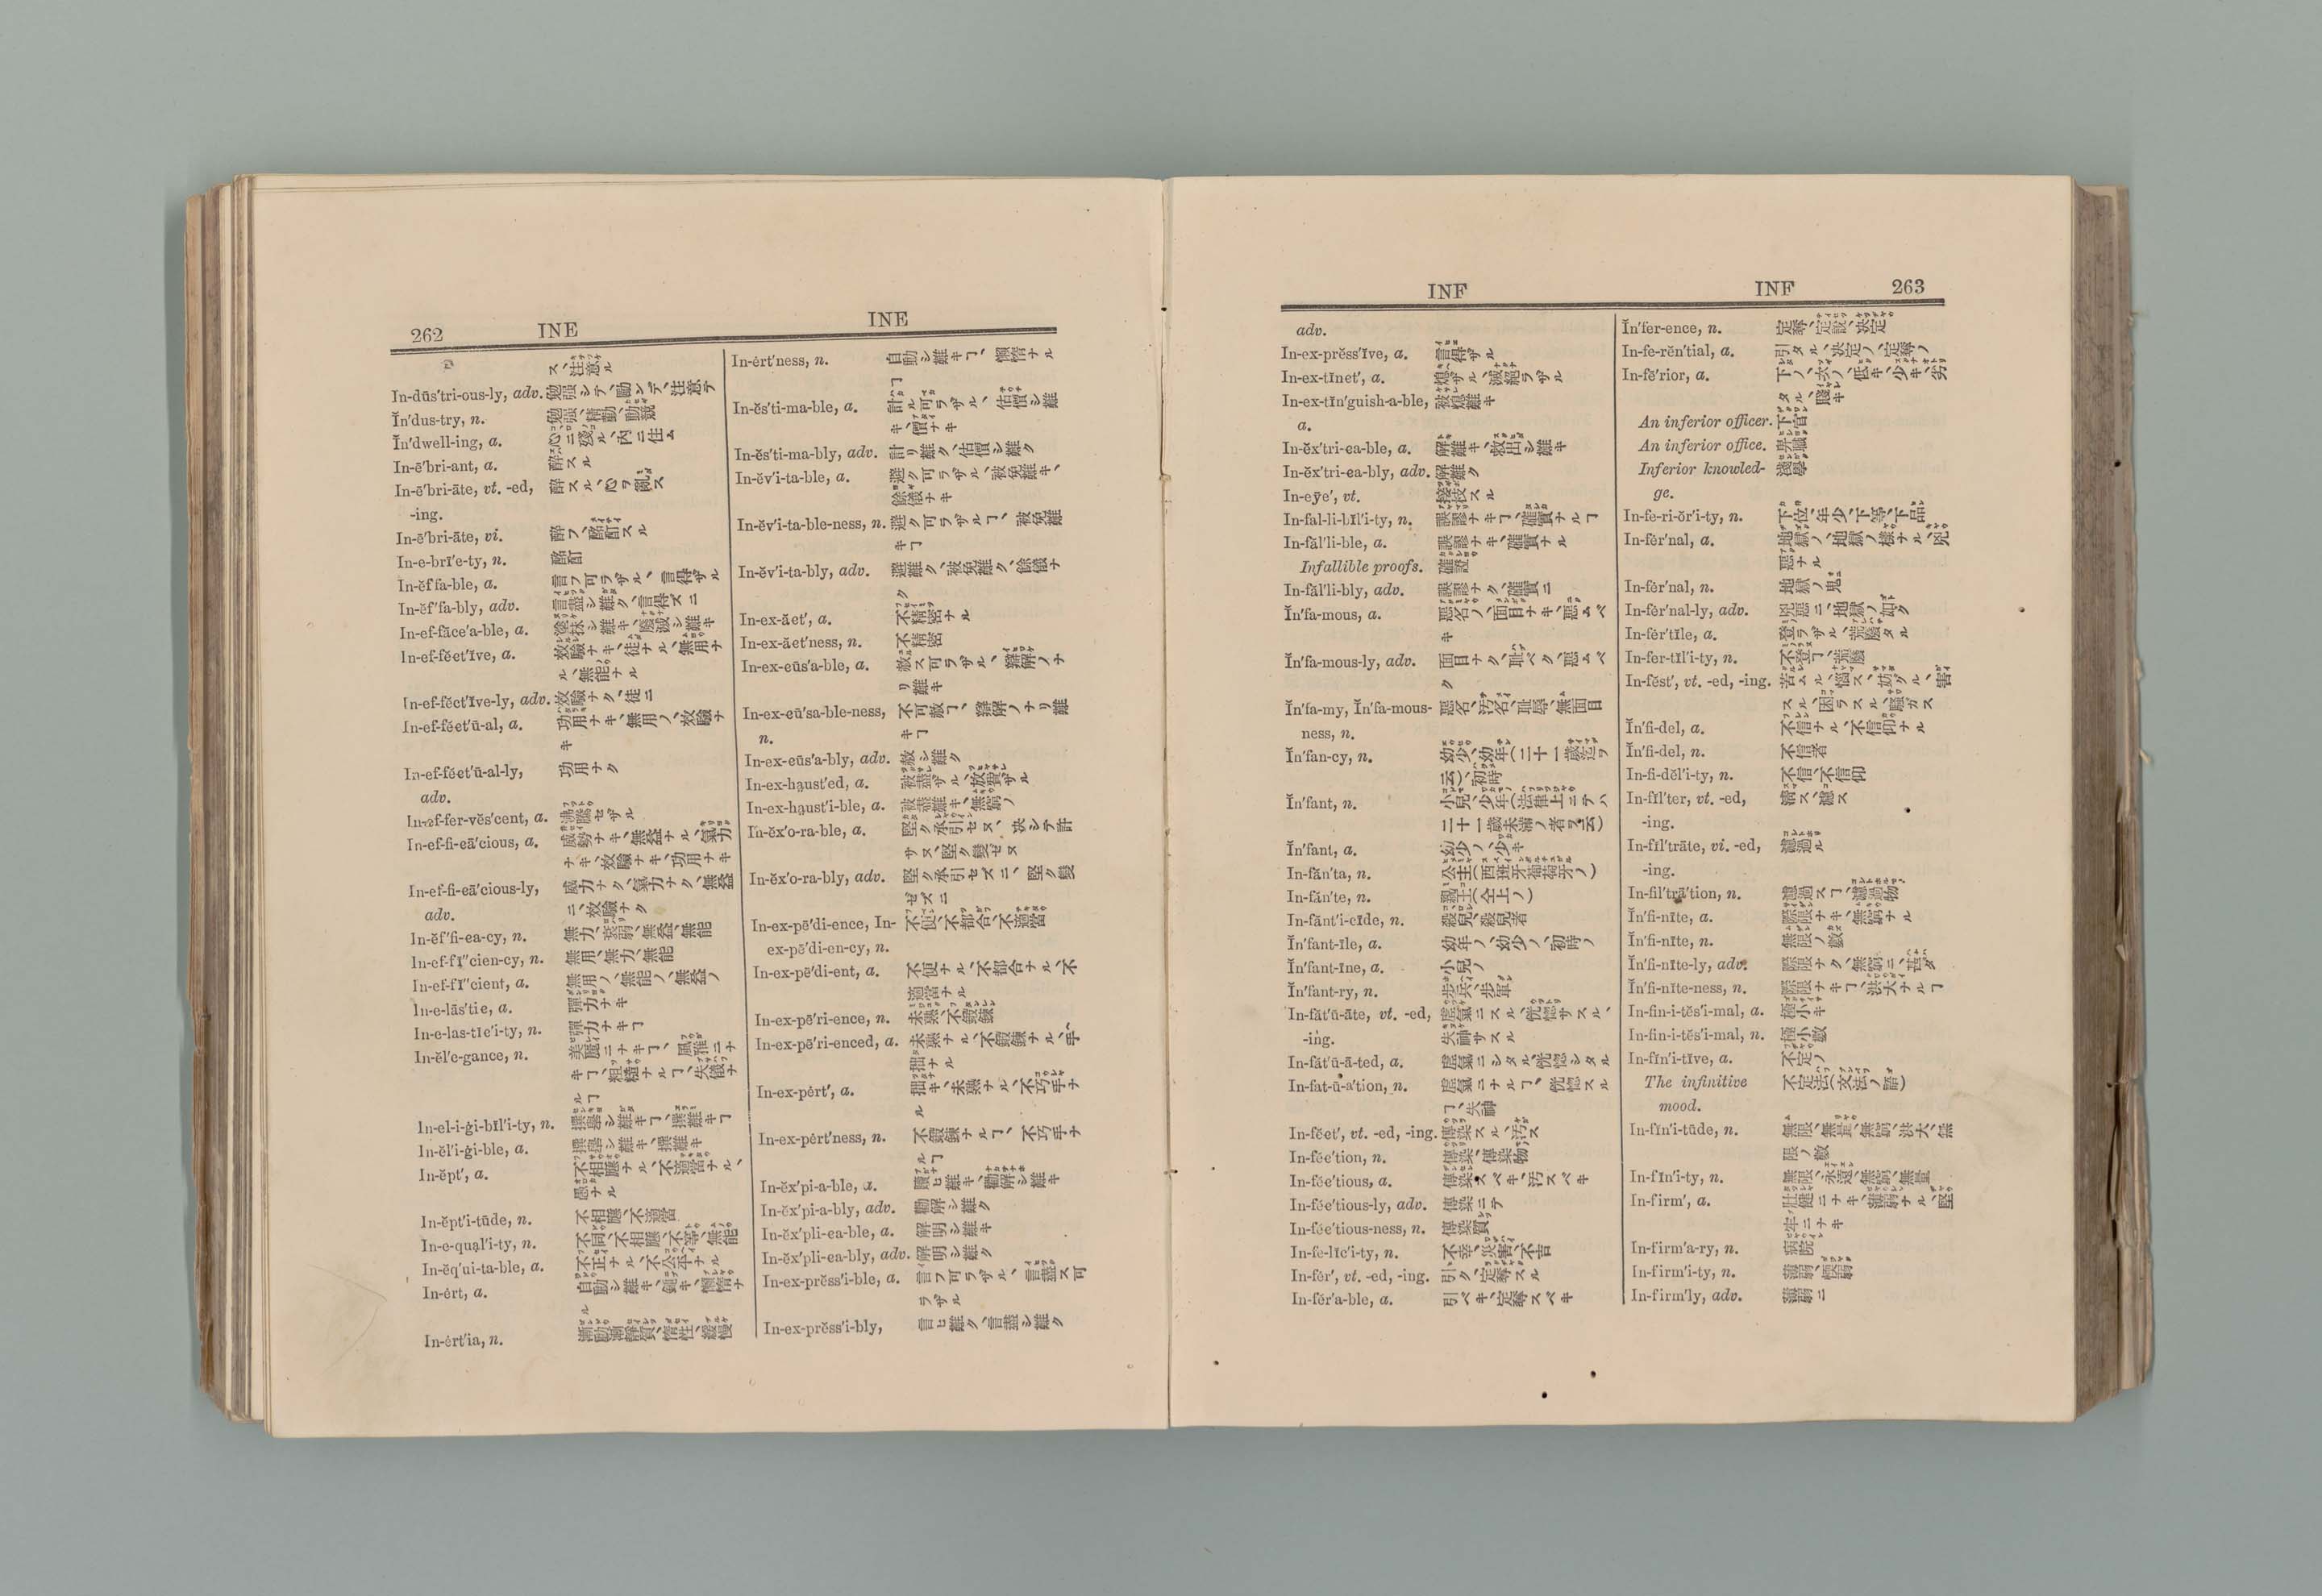 262 INE INE
ス、注意ル
In-dŭs′tri-ous-ly, adv. 勉強シテ、勵ンデ、注意テ
Ĭn′dus-try, n. 勉強、精動、勤競
Ĭn′dwell-ing, a. 心ニ殘ル、內ニ住ム
In-ē′bri-ant, a. 醉スル
In-ē′bri-āte, vt. -ed, 醉スル、心ヲ亂ス
-ing.
In-ē′bri-āte, vi. 醉フ、酩酊スル
In-e-brī′e-ty, n. 酩酊
In-ĕf′fa-ble, a. 言フ可ラザル、言得ザル
In-ĕf′fa-bly, adv. 言盡シ難ク、言得ズニ
In-ef-fāce′a-ble, a. 塗抹シ難キ、廢滅シ難キ
In-ef-féct′ĭve, a. 效驗ナキ、徒ナル、無用ナ
ル、無能ナル
In-ef-féct′ĭve-ly, adv. 效驗ナク、徒ニ
In-ef-féet′ū-al, a. 功用ナキ、無用ノ、效驗ナ
キ
In-ef-féet′ū-al-ly, 功用ナク
adv.
In-ef-fer-vĕs′cent, a. 沸騰セザル
In-ef-fi-eā′cious, a. 威勢ナキ、無益ナル、氣力
ナキ、效驗ナキ、功用ナキ
In-ef-fi-eā′cious-ly, 威力ナク、氣力ナク、無益
adv. ニ、效驗ナク
In-ĕf′fi-ea-cy, n. 無力、柔弱、無益、無能
In-ef-fĭ″cien-cy, n. 無用、無力、無能
In-ef-fĭ″cient, a. 無用ノ、無能ノ、無益ノ
In-e-lăs′tie, a. 彈力ナキ
In-e-las-tĭe′i-ty, n. 彈力ナキヿ
In-ĕl′e-gance, n. 美麗ニナキヿ、風雅ニナ
キヿ、粗糙ナルヿ、失儀ナ
ルヿ
In-el-i-ġi-bĭl′i-ty, n. 撰擧シ難キヿ、撰難キヿ
In-ĕl′i-ġi-ble, a. 撰擧シ難キ、撰難キ
In-ĕpt′, a. 不相應ナル、不適當ナル、
愚ナル
In-ĕpt′i-tūde, n. 不相應、不適當
In-e-qual′i-ty, n. 不同、不相應、不等、無能
In-ĕq′ui-ta-ble, a. 不正ナル、不公平ナル
In-ért, a. 自動シ難キ、鈍キ、懶惰ナ
ル
In-ért′ia, n. 惰性、緩慢
In-ért′ness, n. 自動シ難キヿ、懶惰ナル
ヿ
In-ĕs′ti-ma-ble, a. 計ル可ラザル、估價シ難
キ、價ナキ
In-ĕs′ti-ma-bly, adv. 計リ難ク、估價シ難ク
In-ĕv′i-ta-ble, a. 避ク可ラザル、被免難キ、
餘儀ナキ
In-ĕv′i-ta-ble-ness, n. 避ク可ラザルヿ、被免難
キヿ
In-ĕv′i-ta-bly, adv. 避難ク、被免難ク、餘儀ナ
ク
In-ex-ăet′, a. 不精密ナル
In-ex-ăet′ness, n. 不精密
In-ex-eūs′a-ble, a. 赦ス可ラザル、辯解ノナ
リ難キ
In-ex-eū′sa-ble-ness, 不可赦ヿ、辯解ノナリ難
n. キヿ
In-ex-eūs′a-bly, adv. 赦シ難ク
In-ex-haust′ed, a. 被盡ザル、放費ザル
In-ex-haust′i-ble, a. 被盡難キ、無窮ノ
In-ĕx′o-ra-ble, a. 堅ク承引セヌ、決シテ許
サヌ、堅ク變ゼヌ
In-ĕx′o-ra-bly, adv. 堅ク承引セズニ、堅ク變
ゼズニ
In-ex-pē′di-ence, In- 不便、不都合、不適當
ex-pē′di-en-cy, n.
In-ex-pē′di-ent, a. 不便ナル、不都合ナル、不
適當ナル
In-ex-pē′ri-ence, n. 未熟、不鍛錬
In-ex-pē′ri-enced, a. 未熟ナル、不鍛錬ナル、手
拙ナル
In-ex-pért′, a. 拙キ、未熟ナル、不巧手ナ
ル
In-ex-pért′ness, n. 不鍛錬ナルヿ、不巧手ナ
ルヿ
In-ĕx′pi-a-ble, a. 贖ヒ難キ、勸解シ難キ
In-ĕx′pi-a-bly, adv. 勸解シ難ク
In-ĕx′pli-ea-ble, a. 解明シ難キ
In-ĕx′pli-ea-bly, adv. 解明シ難ク
In-ex-prĕss′i-ble, a. 言フ可ラザル、言盡ス可
ラザル
In-ex-prĕss′i-bly, 言ヒ難ク、言盡シ難ク
INF INF 263
adv.
In-ex-prĕss′ĭve, a. 言得ザル
In-ex-tĭnet′, a. 熄ザル、滅絕ラザル
In-ex-tĭn′guish-a-ble, 被熄難キ
a.
In-ĕx′tri-ea-ble, a. 解難キ、救出シ難キ
In-ĕx′tri-ea-bly, adv. 解難ク
In-eȳe′, vt. 接枝スル
In-fal-li-bĭl′i-ty, n. 誤謬ナキヿ、確實ナルヿ
In-făl′li-ble, a. 誤謬ナキ、確實ナル
Infallible proofs. 確證
In-făl′li-bly, adv. 誤謬ナク、確實ニ
Ĭn′fa-mous, a. 惡名ノ、面目ナキ、惡ムベ
キ
Ĭn′fa-mous-ly, adv. 面目ナク、耻ベク、惡ムベ
ク
Ĭn′fa-my, Ĭn′fa-mous- 惡名、汚名、耻辱、無面目
ness, n.
Ĭn′fan-cy, n. 幼少、幼年(二十一歲迄ヲ
云)、初時
Ĭn′fant, n. 小兒、少年(法律上ニテハ
二十一歲未滿ノ者ヲ云)
Ĭn′fant, a. 幼少ノ、少キ
In-făn′ta, n. 公主(西班牙葡萄牙ノ)
In-făn′te, n. 親王(仝上ノ)
In-fănt′i-cīde, n. 殺兒、殺兒者
Ĭn′fant-īle, a. 幼年ノ、幼少ノ、初時ノ
Ĭn′fant-īne, a. 小兒ノ
Ĭn′fant-ry, n. 步兵、步軍
In-făt′ū-āte, vt. -ed, 虛氣ニスル、恍惚サスル、
-ing. 失神サスル
In-făt′ū-ā-ted, a. 虛氣ニシタル、恍惚シタル
In-fat-ū-a′tion, n. 虛氣ニナルヿ、恍惚スル
ヿ、失神
In-féet′, vt. -ed, -ing. 傳染スル、汚ス
In-fée′tion, n. 傳染、傳染物
In-fée′tious, a. 傳染スベキ、汚スベキ
In-fée′tious-ly, adv. 傳染ニテ
In-fée′tious-ness, n. 傳染質
In-fe-lĭc′i-ty, n. 不幸、災害、不吉
In-fér′, vt. -ed, -ing. 引ク、定奪スル
In-fér′a-ble, a. 引ベキ、定奪スベキ
Ĭn′fer-ence, n. 定奪、定說、決定
In-fe-rĕn′tial, a. 引タル、決定ノ、定奪ノ
In-fē′rior, a. 下ノ、次ノ、低キ、少キ、劣
タル、賤キ
An inferior officer. 下官
An inferior office. 卑職
Inferior knowled- 淺學
ge.
In-fe-ri-ŏr′i-ty, n. 下位、年少、下等、下品
In-fér′nal, a. 地獄ノ、地獄ノ樣ナル、兇
惡ナル
In-fér′nal, n. 地獄ノ鬼
In-fér′nal-ly, adv. 兇惡ニ、地獄ノ如ク
In-fér′tĭle, a. 登ラザル、荒廢タル
In-fer-tĭl′i-ty, n. 不登ヿ、荒廢
In-fést′, vt. -ed, -ing. 苦ムル、惱ス、妨グル、害
スル、困ラスル、騷ガス
Ĭn′fi-del, a. 不信ナル、不信仰ナル
Ĭn′fi-del, n. 不信者
In-fi-dĕl′i-ty, n. 不信、不信仰
In-fĭl′ter, vt. -ed, 濟ス、濾ス
-ing.
In-fĭl′trāte, vi. -ed, 濾過ル
-ing.
In-fil′trā′tion, n. 濾過スヿ、濾過物
Ĭn′fi-nĭte, a. 際限ナキ、無窮ナル
Ĭn′fi-nĭte, n. 無限ノ數
Ĭn′fi-nĭte-ly, adv. 際限ナク、無窮ニ、甚ダ
Ĭn′fi-nĭte-ness, n. 際限ナキヿ、洪大ナルヿ
In-fin-i-tĕs′i-mal, a. 極小キ
In-fin-i-tĕs′i-mal, n. 極小數
In-fĭn′i-tĭve, a. 不定ノ
The infinitive 不定法(文法ノ語)
mood.
In-fĭn′i-tūde, n. 無限、無量、無窮、洪大、無
限ノ數
In-fĭn′i-ty, n. 無限、永遠、無窮、無量
In-firm′, a. 壯健ニナキ、薄弱ナル、堅
牢ニナキ
In-firm′a-ry, n. 病院
In-firm′i-ty, n. 薄弱、懦弱
In-firm′ly, adv. 薄弱ニ